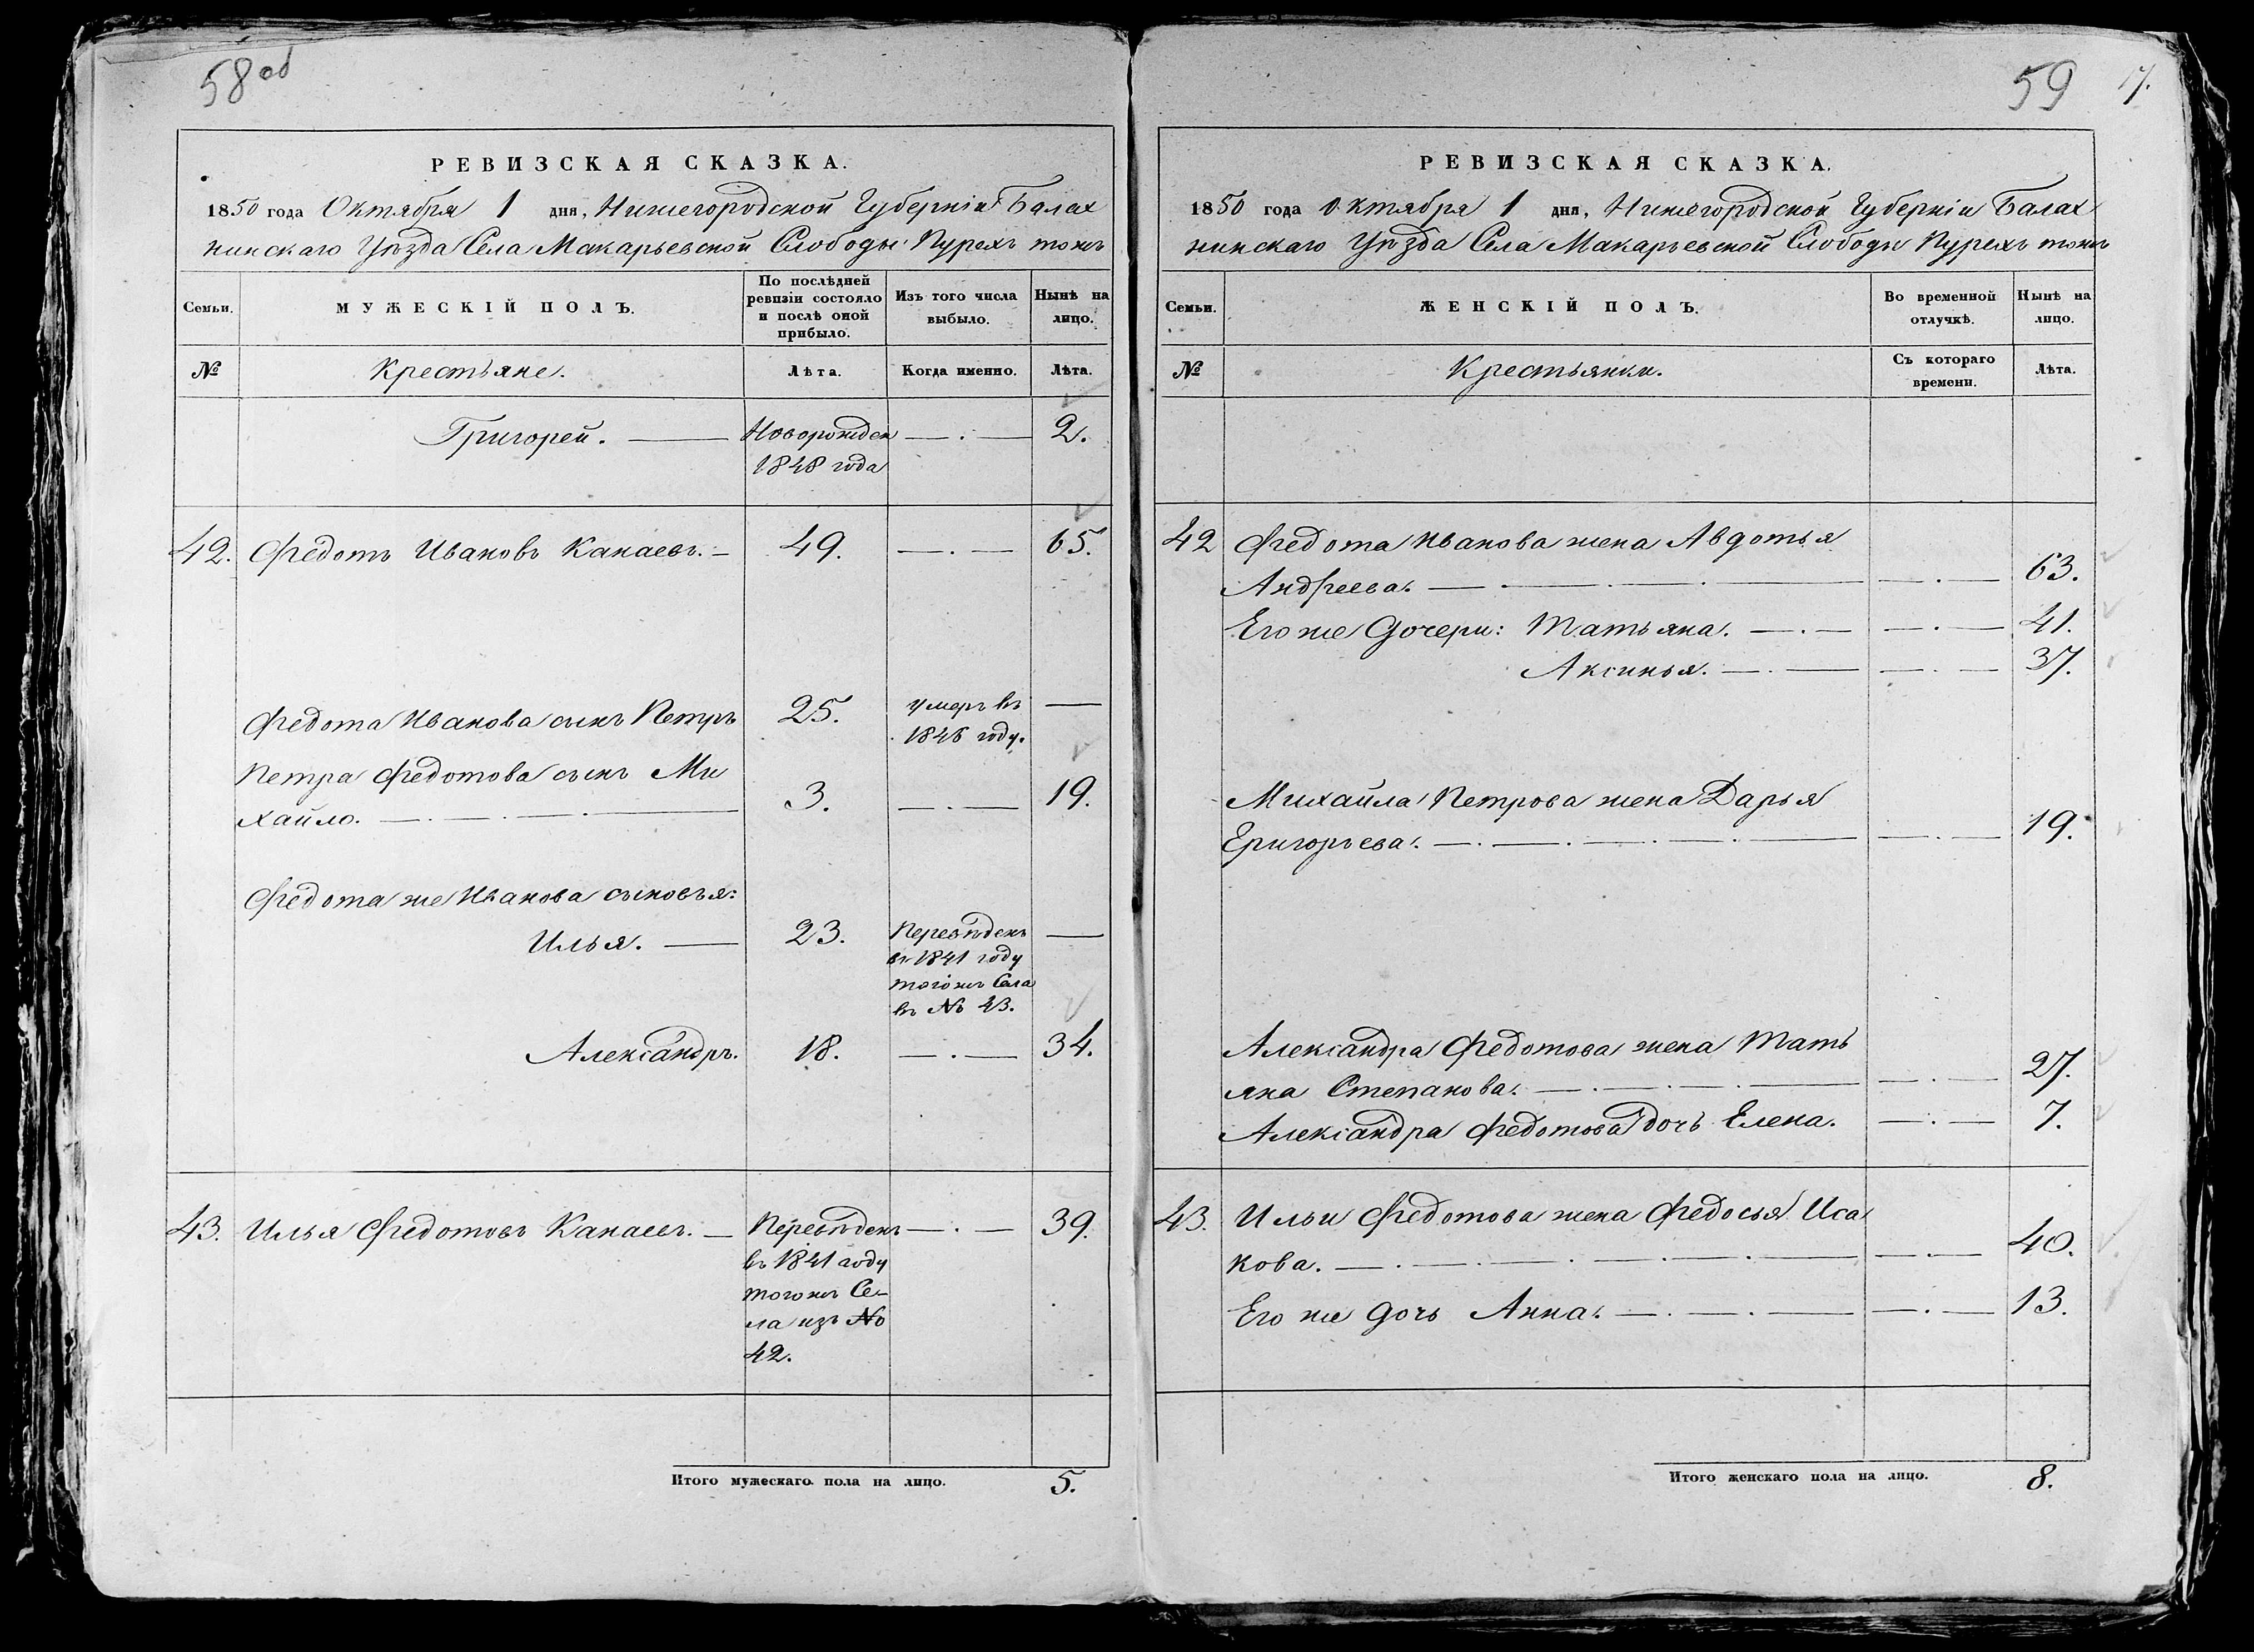 58об
РЕВИЗСКАЯ СКАЗКА.
1850 года Октября 1 дня, Нижегородской Губерніи Балах
нинскаго Уѣзда Села Макарьевской Слободы Пурехъ тожъ
Семьи.
МУЖЕСКІЙ ПОЛЪ.
По послѣдней
ревизіи состояло
и послѣ оной
прибыло.
Изъ того числа
выбыло.
Нынѣ на
лицо.
№
Крестьяне.
Лѣта.
Когда именно.
Лѣта.
Григорей. — Новорожден — . — 2.
1848 года
42. Федотъ Ивановъ Канаевъ. — 49. — . — 65.
Федота Иванова сынъ Петръ 25. умеръ въ —
1846 году.
Петра Федотова сынъ Ми
хайло. — . — . — . — 3. — . — 19.
Федота же Иванова сыновья:
Илья. — 23. Переведенъ —
въ 1841 году
тогожъ Села
въ № 43.
Александръ. 18. — . — 34.
43. Илья Федотовъ Канаевъ. — Переведенъ — . — 39.
въ 1841 году
тогожъ Се-
ла изъ №
42.
Итого мужескаго пола на лицо. 5.
59 17.
РЕВИЗСКАЯ СКАЗКА.
1850 года Октября 1 дня, Нижегородской Губерніи Балах
нинскаго Уѣзда Села Макарьевской Слободы Пурехъ тожъ
Семьи.
ЖЕНСКІЙ ПОЛЪ.
Во временной
отлучкѣ.
Нынѣ на
лицо.
№
Крестьянки.
Съ котораго
времени.
Лѣта.
42 Федота Иванова жена Авдотья
Андреева. — . — . — . — — . — 63.
Его же дочери: Татьяна. — . — — . — 41.
Аксинья. — . — — . — 37.
Михайла Петрова жена Дарья
Григорьева. — . — . — . — . — — . — 19.
Александра Федотова жена Тать
яна Степанова. — . — . — . — — . — 27.
Александра Федотова дочь Елена. — . — 7.
43. Ильи Федотова жена Федосья Иса
кова. — . — . — . — . — — . — 40.
Его же дочь Анна. — . — . — — . — 13.
Итого женскаго пола на лицо. 8.